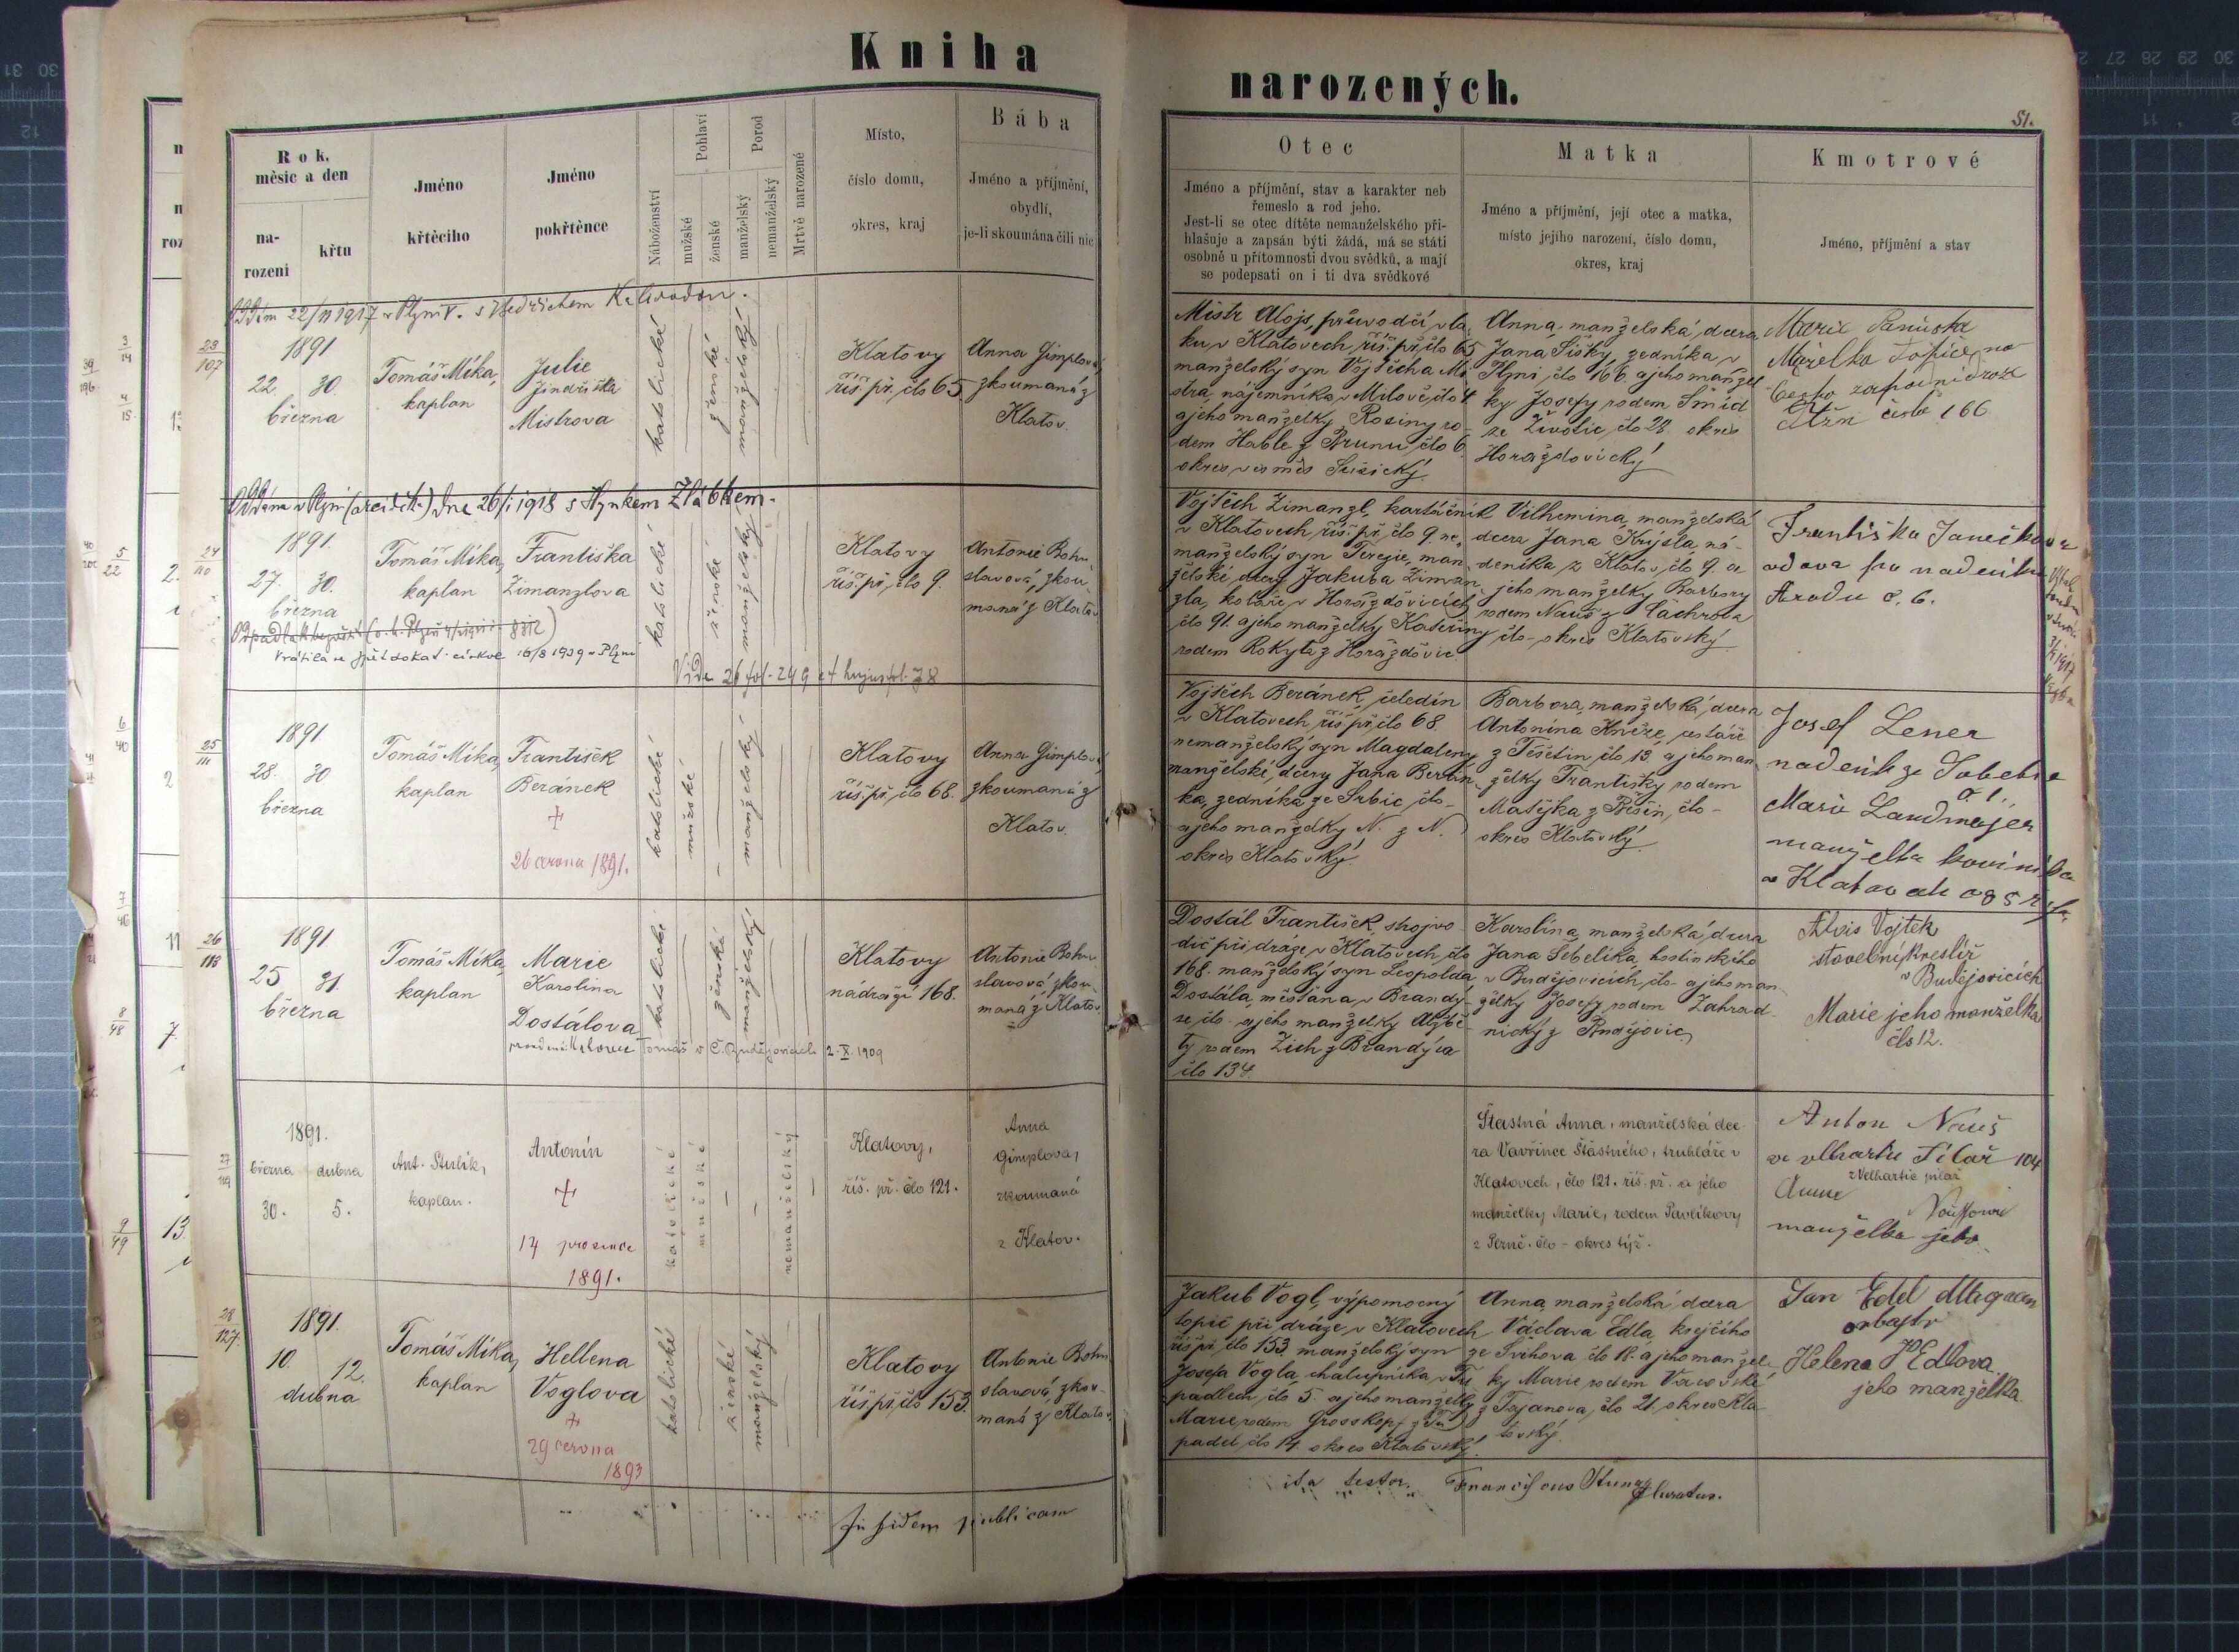 Kniha
narozených.
51.
Rok,
měsíc a den
na-
rozeni
křtu
Jméno
křtěcího
Jméno
pokřtěnce
Náboženství
Pohlaví
mužské
ženské
Porod
manželský
nemanželský
Mrtvě narozené
Místo,
číslo domu,
okres, kraj
Bába
Jméno a příjmění,
obydlí,
je-li skoumána čili nic
Otec
Jméno a příjmění, stav a karakter neb
řemeslo a rod jeho.
Jest-li se otec dítěte nemanželského při-
hlašuje a zapsán býti žádá, má se státi
osobně u přítomnosti dvou svědků, a mají
se podepsati on i ti dva svědkové
Matka
Jméno a příjmění, její otec a matka,
místo jejího narození, číslo domu,
okres, kraj
Kmotrové
Jméno, příjmění a stav
23
107
1891
22. 30.
března
Tomáš Míka,
kaplan
Julie
Jindřiška
Mistrova
katolické
ženské
manželský
Klatovy
říš. př. člo 65
Anna Gimplová
zkoumaná z
Klatov.
Mistr Alojs, průvodčí vla-
ku, v Klatovech, říš. př. člo 65
manželský syn Vojtěcha Mi-
stra, nájemníka v
a jeho manželky Rosiny ro-
dem Hable z člo 6.
okres Sušický.
Anna, manželská dcera
Jana Šišky, zedníka v
člo 166 a jeho manžel-
ky Josefy rodem Šmíd
ze Životic, člo 28. okres
Horažďovický
Marie
Manželka Topiče na
166
Oddána v Plzni dne 26/I 1918 s Hynkem Žlábkem.
24
110
1891.
27. 30.
března
Tomáš Míka,
kaplan
Františka
Zimanzlova
katolické
ženské
manželský
Klatovy
říš. př. člo 9.
Antonie Bohu-
slavová, zkou-
maná z Klatov
Vrátila se zpět do kat. církve 16/8 1939 v Plzni
Vojtěch Zimanzl, kartáčník
v Klatovech, říš. př. člo 9. ne-
manželský syn Terezie, man-
želské dcery Jakuba Ziman-
zla, koláře v Horažďovicích
člo 91. a jeho manželky Kateřiny
rodem Rokyta z Horažďovic.
Vilhemina, manželská
dcera Jana Krýsla, ná-
deníka z Klatov, člo 9. a
jeho manželky Barbory
rodem Nauš z Čachrova
člo - okres Klatovský
Františka Janečkova
vdova po nadeníku
č. 6.
25
111
1891
28. 30
března
Tomáš Míka,
kaplan
František
Beránek
+
26 června 1891.
katolické
mužské
manželský
Klatovy
říš. př. člo 68.
Anna Gimplová
zkoumaná z
Klatov.
Vojtěch Beránek, čeledín
v Klatovech říš. př. člo 68.
nemanželský syn Magdaleny
manželské dcery Jana Berán-
ka, zedníka, ze Srbic, člo -
a jeho manželky N. z N.
okres Klatovský.
Barbora, manželská dcera
Antonína Kněze,
z Těšetin, člo 13. a jeho man-
želky Františky rodem
Matějka z člo -
okres Klatovský
Josef Lener
nadeník ze
Marie Landmajer
manželka
v Klatovech
26
113
1891
25 31.
března
Tomáš Míka,
kaplan
Marie
Karolina
Dostálova
katolické
ženské
manželský
Klatovy
nádraží 168.
Antonie Bohu-
slavová, zkou-
maná z Klatov.
Tomáš v Č. Budějovicích 2. X. 1909
Dostál František, strojvo-
dič při dráze v Klatovech, člo
168. manželský syn Leopolda
Dostála, měšťana v Brandý-
se člo - a jeho manželky Alžbě-
ty rodem Zich z Brandýsa
člo 134.
Karolina, manželská dcera
Jana Šebelíka, hostinského
v Budějovicích, člo - a jeho man-
želky Josefy rodem Zahrad-
nický z Budějovic
Alois Vojtek
stavební kreslíř
v Budějovicích
Marie jeho manželka
čís 12.
27
119
1891.
března dubna
30. 5.
Ant. Štulík,
kaplan.
Antonín
+
14 prosince
1891.
katolické
mužské
nemanželský
Klatovy,
říš. př. člo 121.
Anna
Gimplova,
zkoumaná
z Klatov.
Šťastná Anna, manželská dce-
ra Vavřince Šťastného, truhláře v
Klatovech, člo 121. říš. př. a jeho
manželky Marie, rodem Pavlíkovy
z člo - okres týž.
Anton Nauš
104
z Velhartic pilař
manželka jeho
28
127.
1891.
10. 12.
dubna
Tomáš Míka,
kaplan
Hellena
Voglova
+
29 června
1893
katolické
ženské
manželský
Klatovy
říš. př. člo 153.
Antonie Bohu-
slavová, zkou-
maná z Klatov.
Jakub Vogl, výpomocný
topič při dráze v Klatovech
říš. př. člo 153. manželský syn
Josefa Vogla, chalupníka v Tu-
padlech, člo 5. a jeho manželky
Marie, rodem Grosskopf z Tu-
padel, člo 14 okres Klatovský.
Anna, manželská dcera
Václava Edla, krejčího
ze Švihova člo 18. a jeho manžel-
ky Marie rodem
z Tajanova, člo 21. okres Kla-
tovský.
Jan Edel
Helena Edlova
jeho manželka.
In fidem publicam
ita testor.